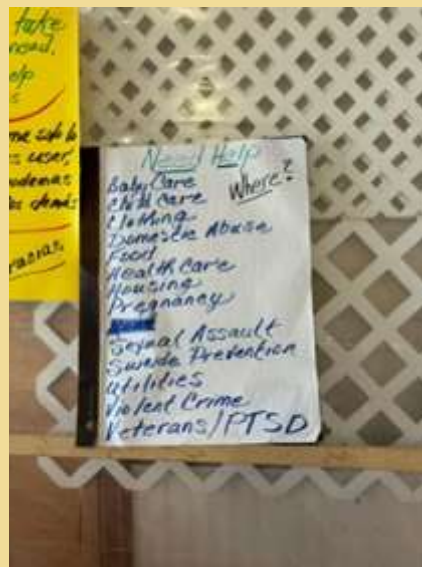 take
help
me solo lo
user,
demás
gracias.
Need Help
Where?
Baby Care
Child Care
Clothing
Domestic Abuse
Food
Health Care
Housing
Pregnancy
Sexual Assault
Suicide Prevention
Utilities
Violent Crime
Veterans/PTSD